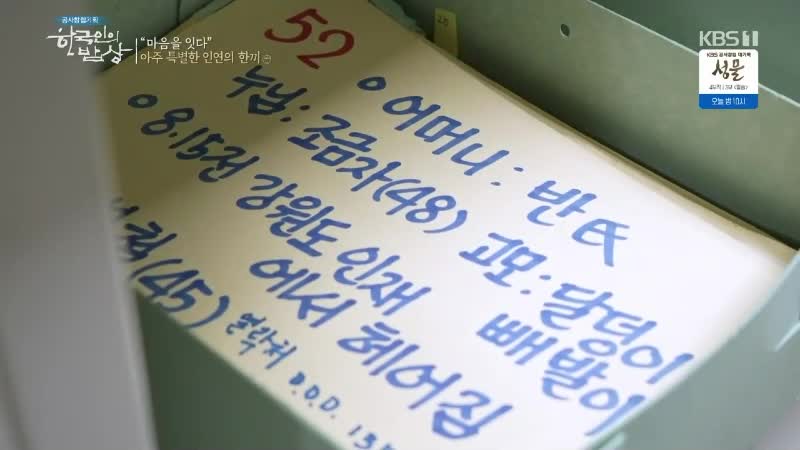 공사창립기획
한국인의 밥상
“마음을 잇다”
아주 특별한 인연의 한끼
KBS 1
KBS 공사창립 대기획
성물
오늘 밤 10시
52
o 어머니: 반氏
누님: 조금자(48) 고모: 달덩이
빼발이
o 8.15전 강원도 인재
에서 헤어짐
(45) 연락처 D.O.D. 13